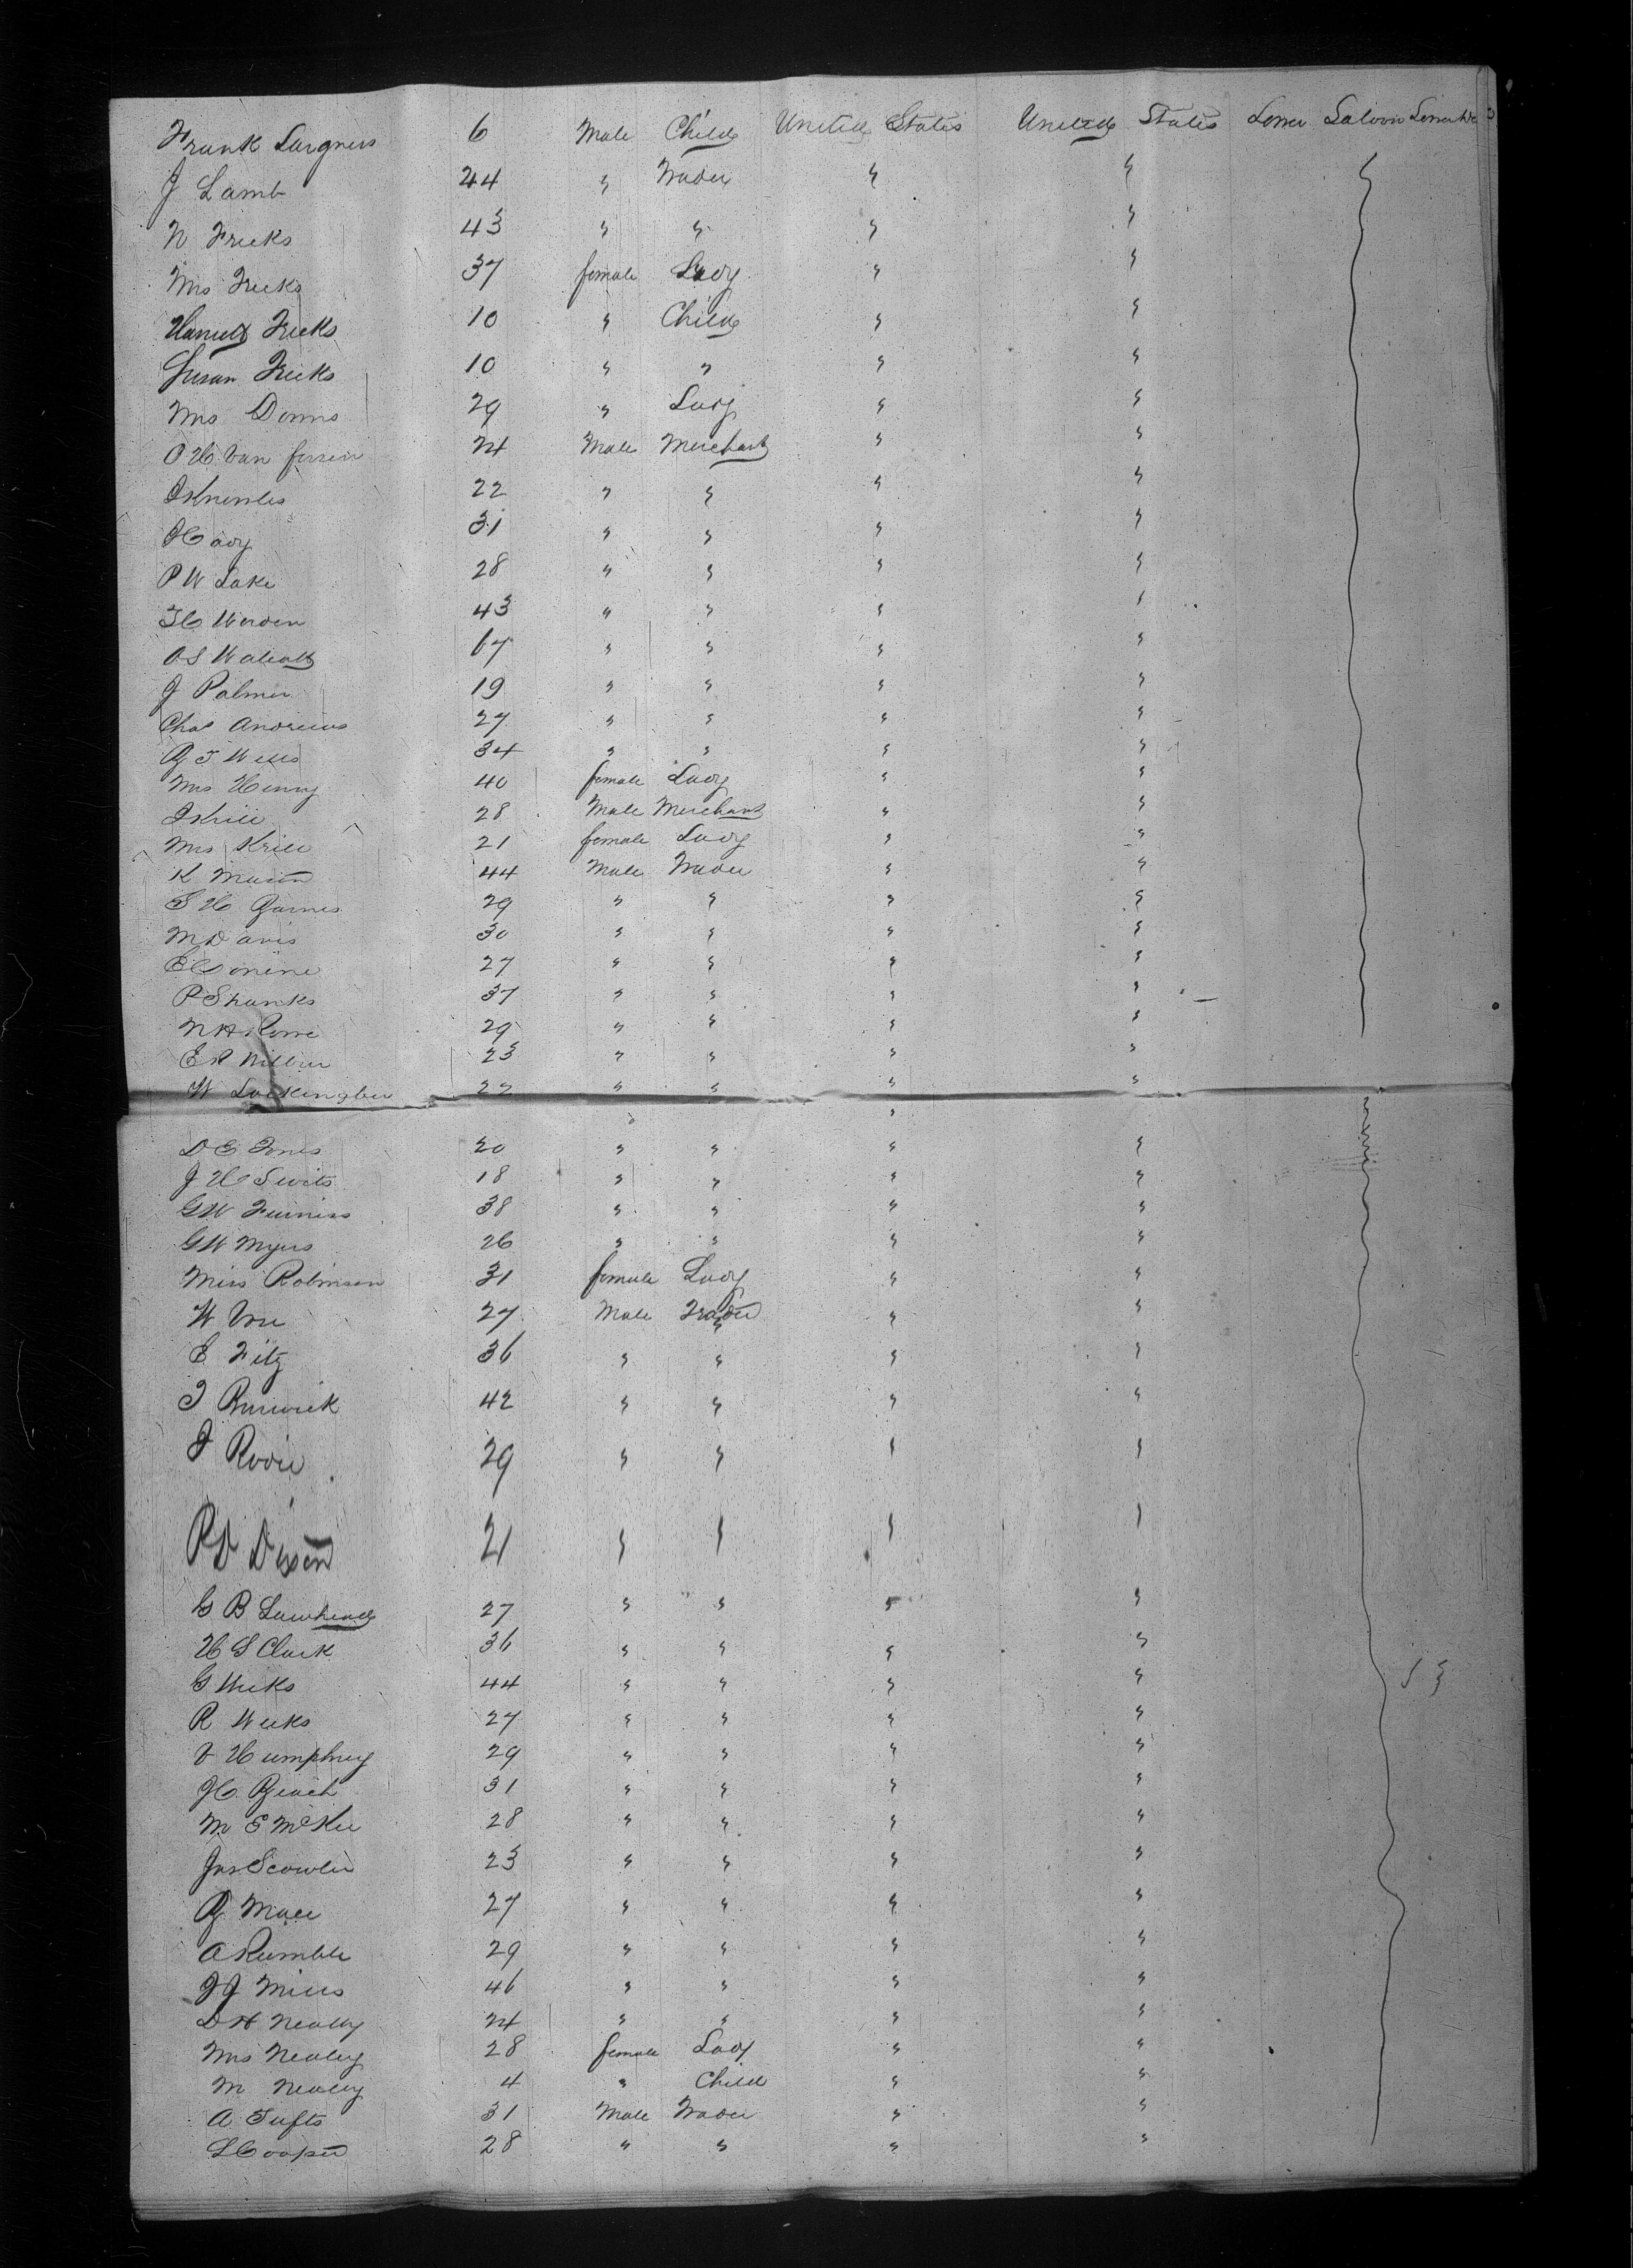 Frank Largness 6 Male Child United States United States Lower Saloon
J Lamb 44 " Trader " "
N Freeks 43 " " " "
Mrs Freeks 37 female Lady " "
Harriett Freeks 10 " Child " "
Susan Freeks 10 " " " "
Mrs 29 " Lady " "
O H Van 24 Male Merchant " "
J Knowles 22 " " " "
31 " " " "
P W Lake 28 " " " "
43 " " " "
O S Walcott 67 " " " "
J Palmer 19 " " " "
Chas Andrews 27 " " " "
34 " " " "
Mrs Henry 40 female Lady " "
J Krill 28 Male Merchant " "
Mrs Krill 21 female Lady " "
K Mason 44 Male Trader " "
S H Barnes 29 " " " "
M Davis 30 " " " "
27 " " " "
P Shanks 37 " " " "
N H Rowe 29 " " " "
E R Wilbur 23 " " " "
W 22 " " " "
"
D E Jones 20 " " " "
J H 18 " " " "
G W Furniss 38 " " " "
G W Myers 26 " " " "
Miss Robinson 31 female Lady " "
W 27 Male Trader " "
E Fitz 36 " " " "
42 " " " "
29 " " " "
R D Dixon 21 " " " "
G B Lawhead 27 " " " "
H S Clark 36 " " " "
G Weeks 44 " " " "
R Weeks 27 " " " "
V Humphrey 29 " " " "
J C Beach 31 " " " "
M E McKee 28 " " " "
Jas Scowler 23 " " " "
B Mace 27 " " " "
A Rumble 29 " " " "
J J Mills 46 " " " "
D H Nealey 24 " " " "
Mrs Nealey 28 female Lady " "
M Nealey 4 " Child " "
A Tufts 31 Male Trader " "
S Cooper 28 " " " "